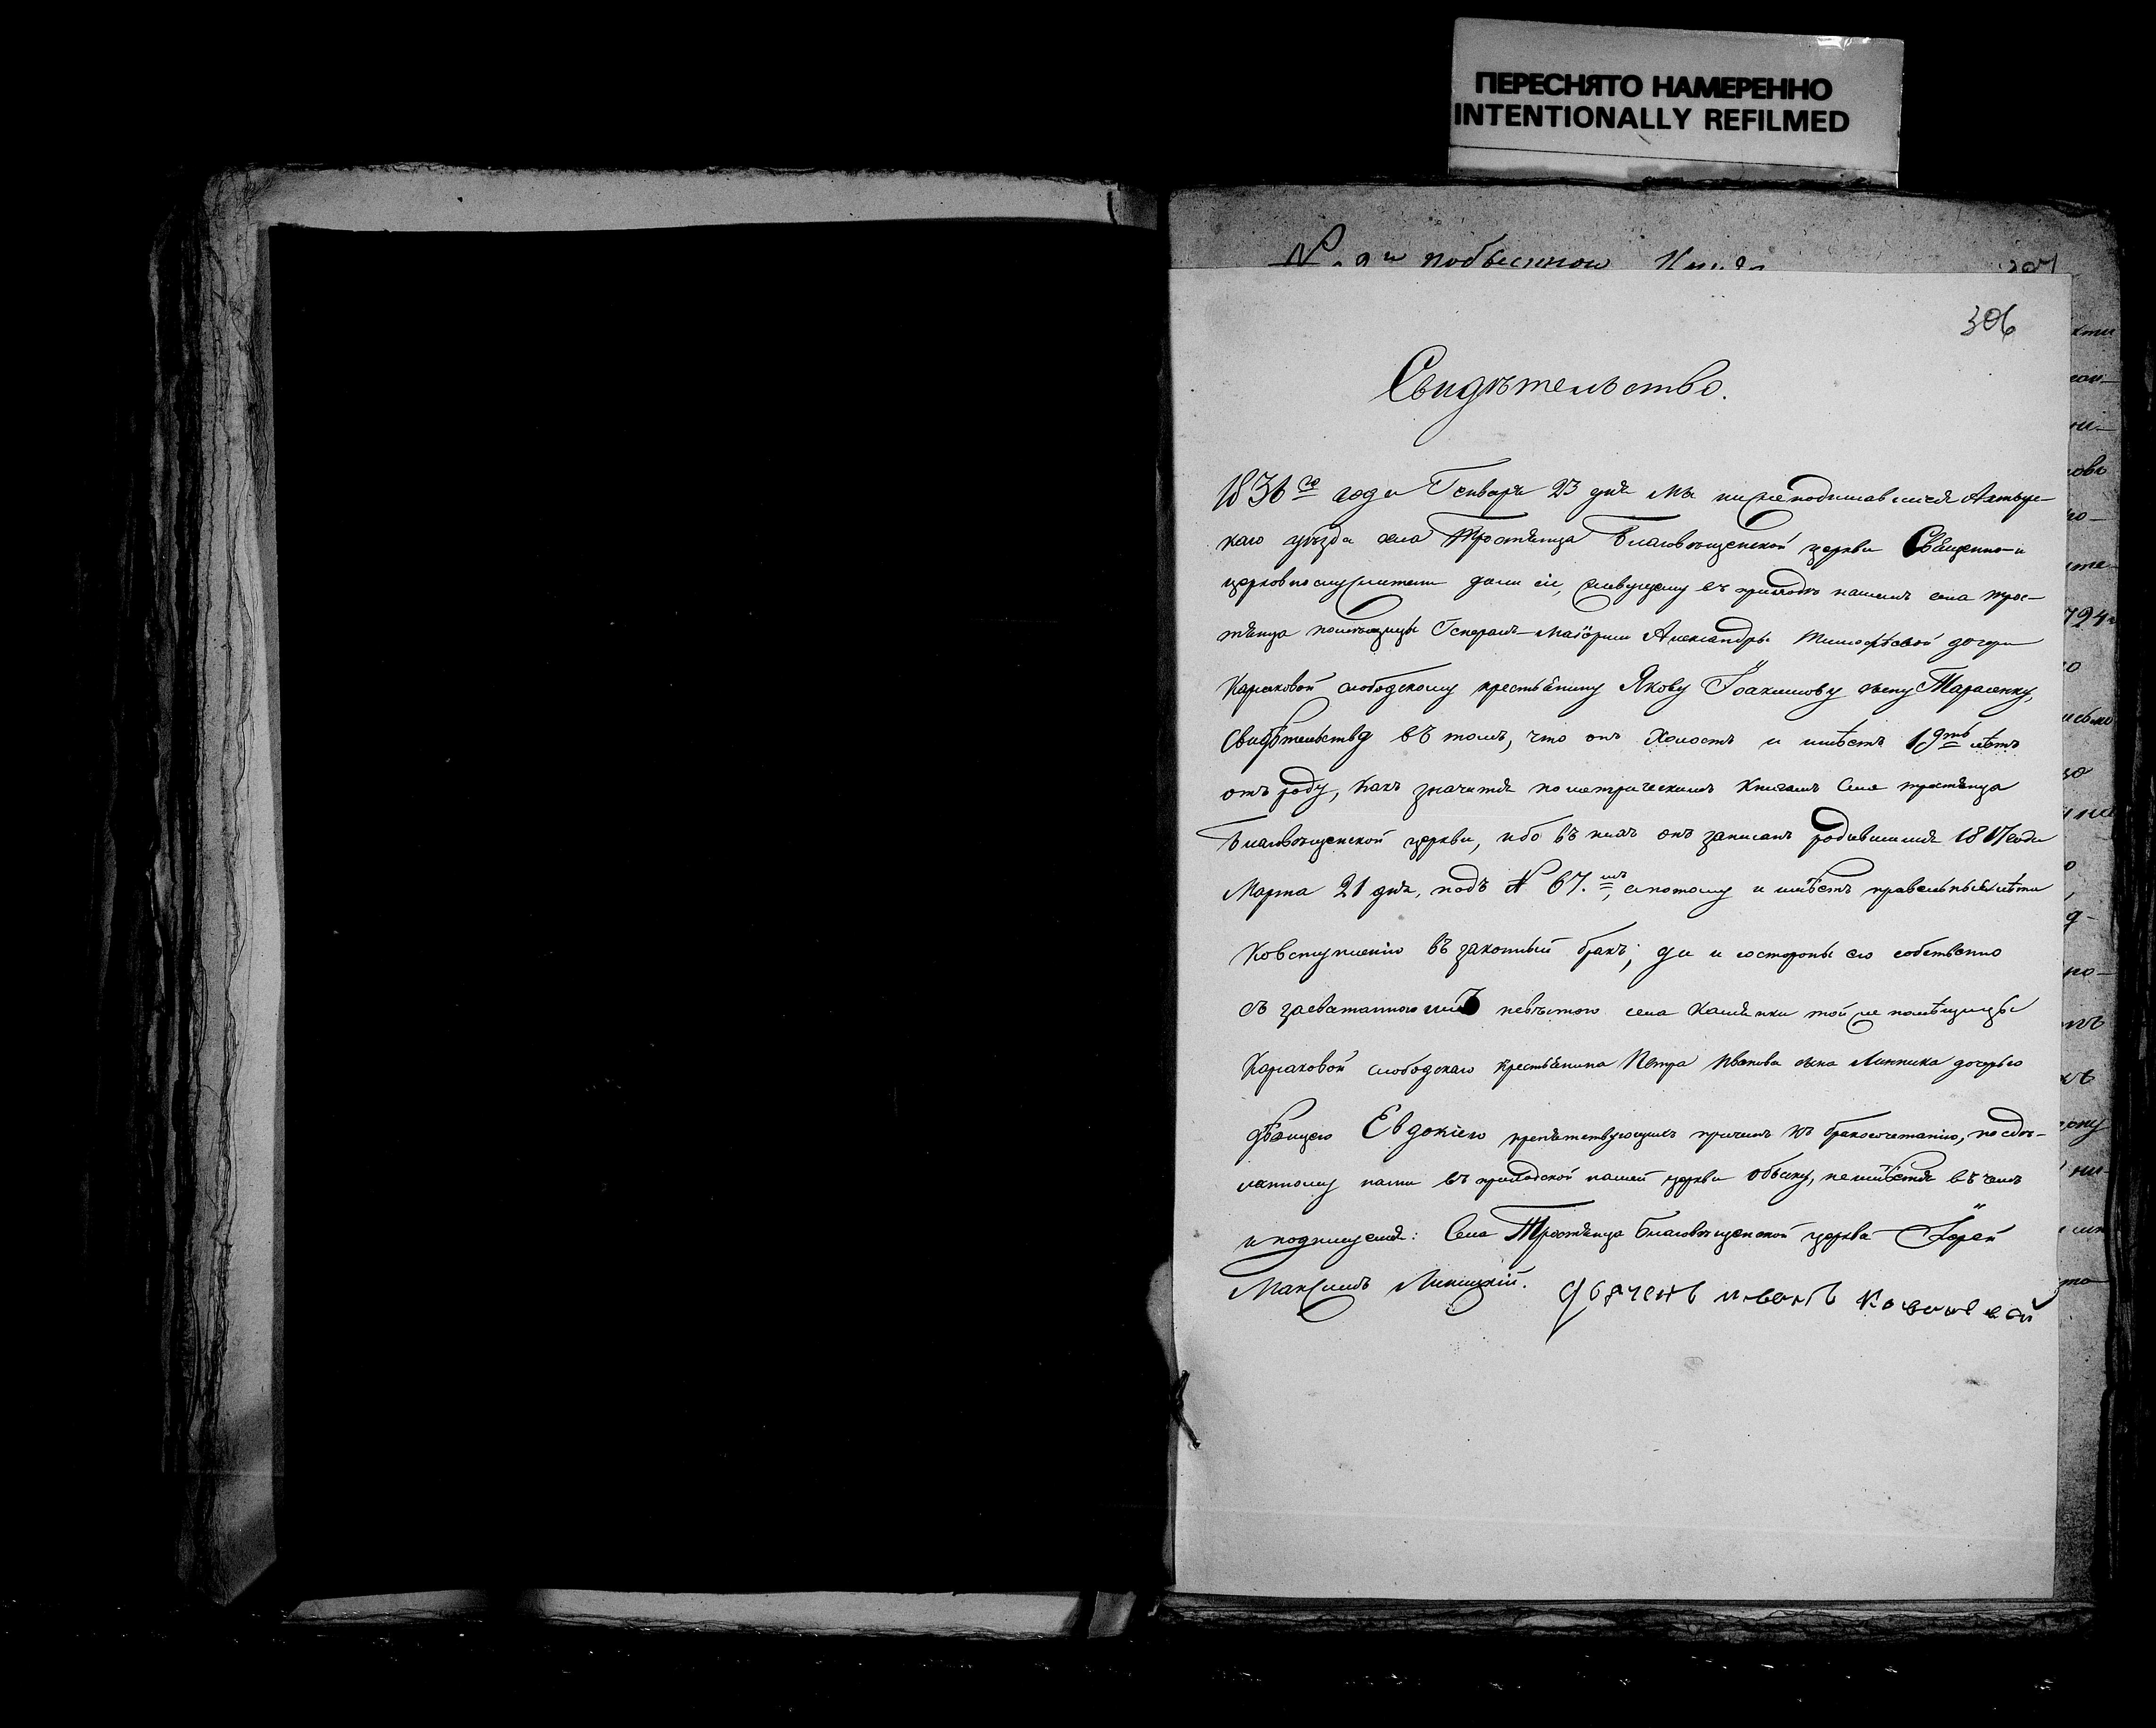 ПЕРЕСНЯТО НАМЕРЕННО
INTENTIONALLY REFILMED
306
Свидѣтельство.
1836го года Генваря 23 дня мы нижеподписавшиеся Ахтырс-
каго уѣзда села Тростянца Благовѣщенской церкви Священно и
церковнослужители дали сіе, живущему въ приходѣ нашемъ села Трос-
тянца помѣщицы Генералъ-Маіорши Александры Тимофѣевой дочери
слободскому крестьянину Якову Іоакимову сыну Тарасенку,
Свидѣтельство въ томъ, что онъ холостъ и имѣетъ лѣтъ
отъ роду, какъ значится по метрическимъ книгамъ села Тростянца
Благовѣщенской церкви, ибо въ нихъ онъ записанъ родившимся 1817 года
Марта 21 дня, подъ № 67.мъ, а потому и имѣетъ лѣта
ко вступленію въ законный бракъ; да и состороны его собственно
съ засватанною имъ невѣстою села Камянки той же помѣщицы
слободскаго крестьянина Петра Иванова сына Линника дочерью
дѣвицею Евдокіею препятствующихъ причинъ къ бракосочетанію, по сдѣ-
ланному нами въ приходской нашей церкви обыску, не имѣется въ чемъ
и подпишемся: Села Тростянца Благовѣщенской церкви Іерей
Максимъ